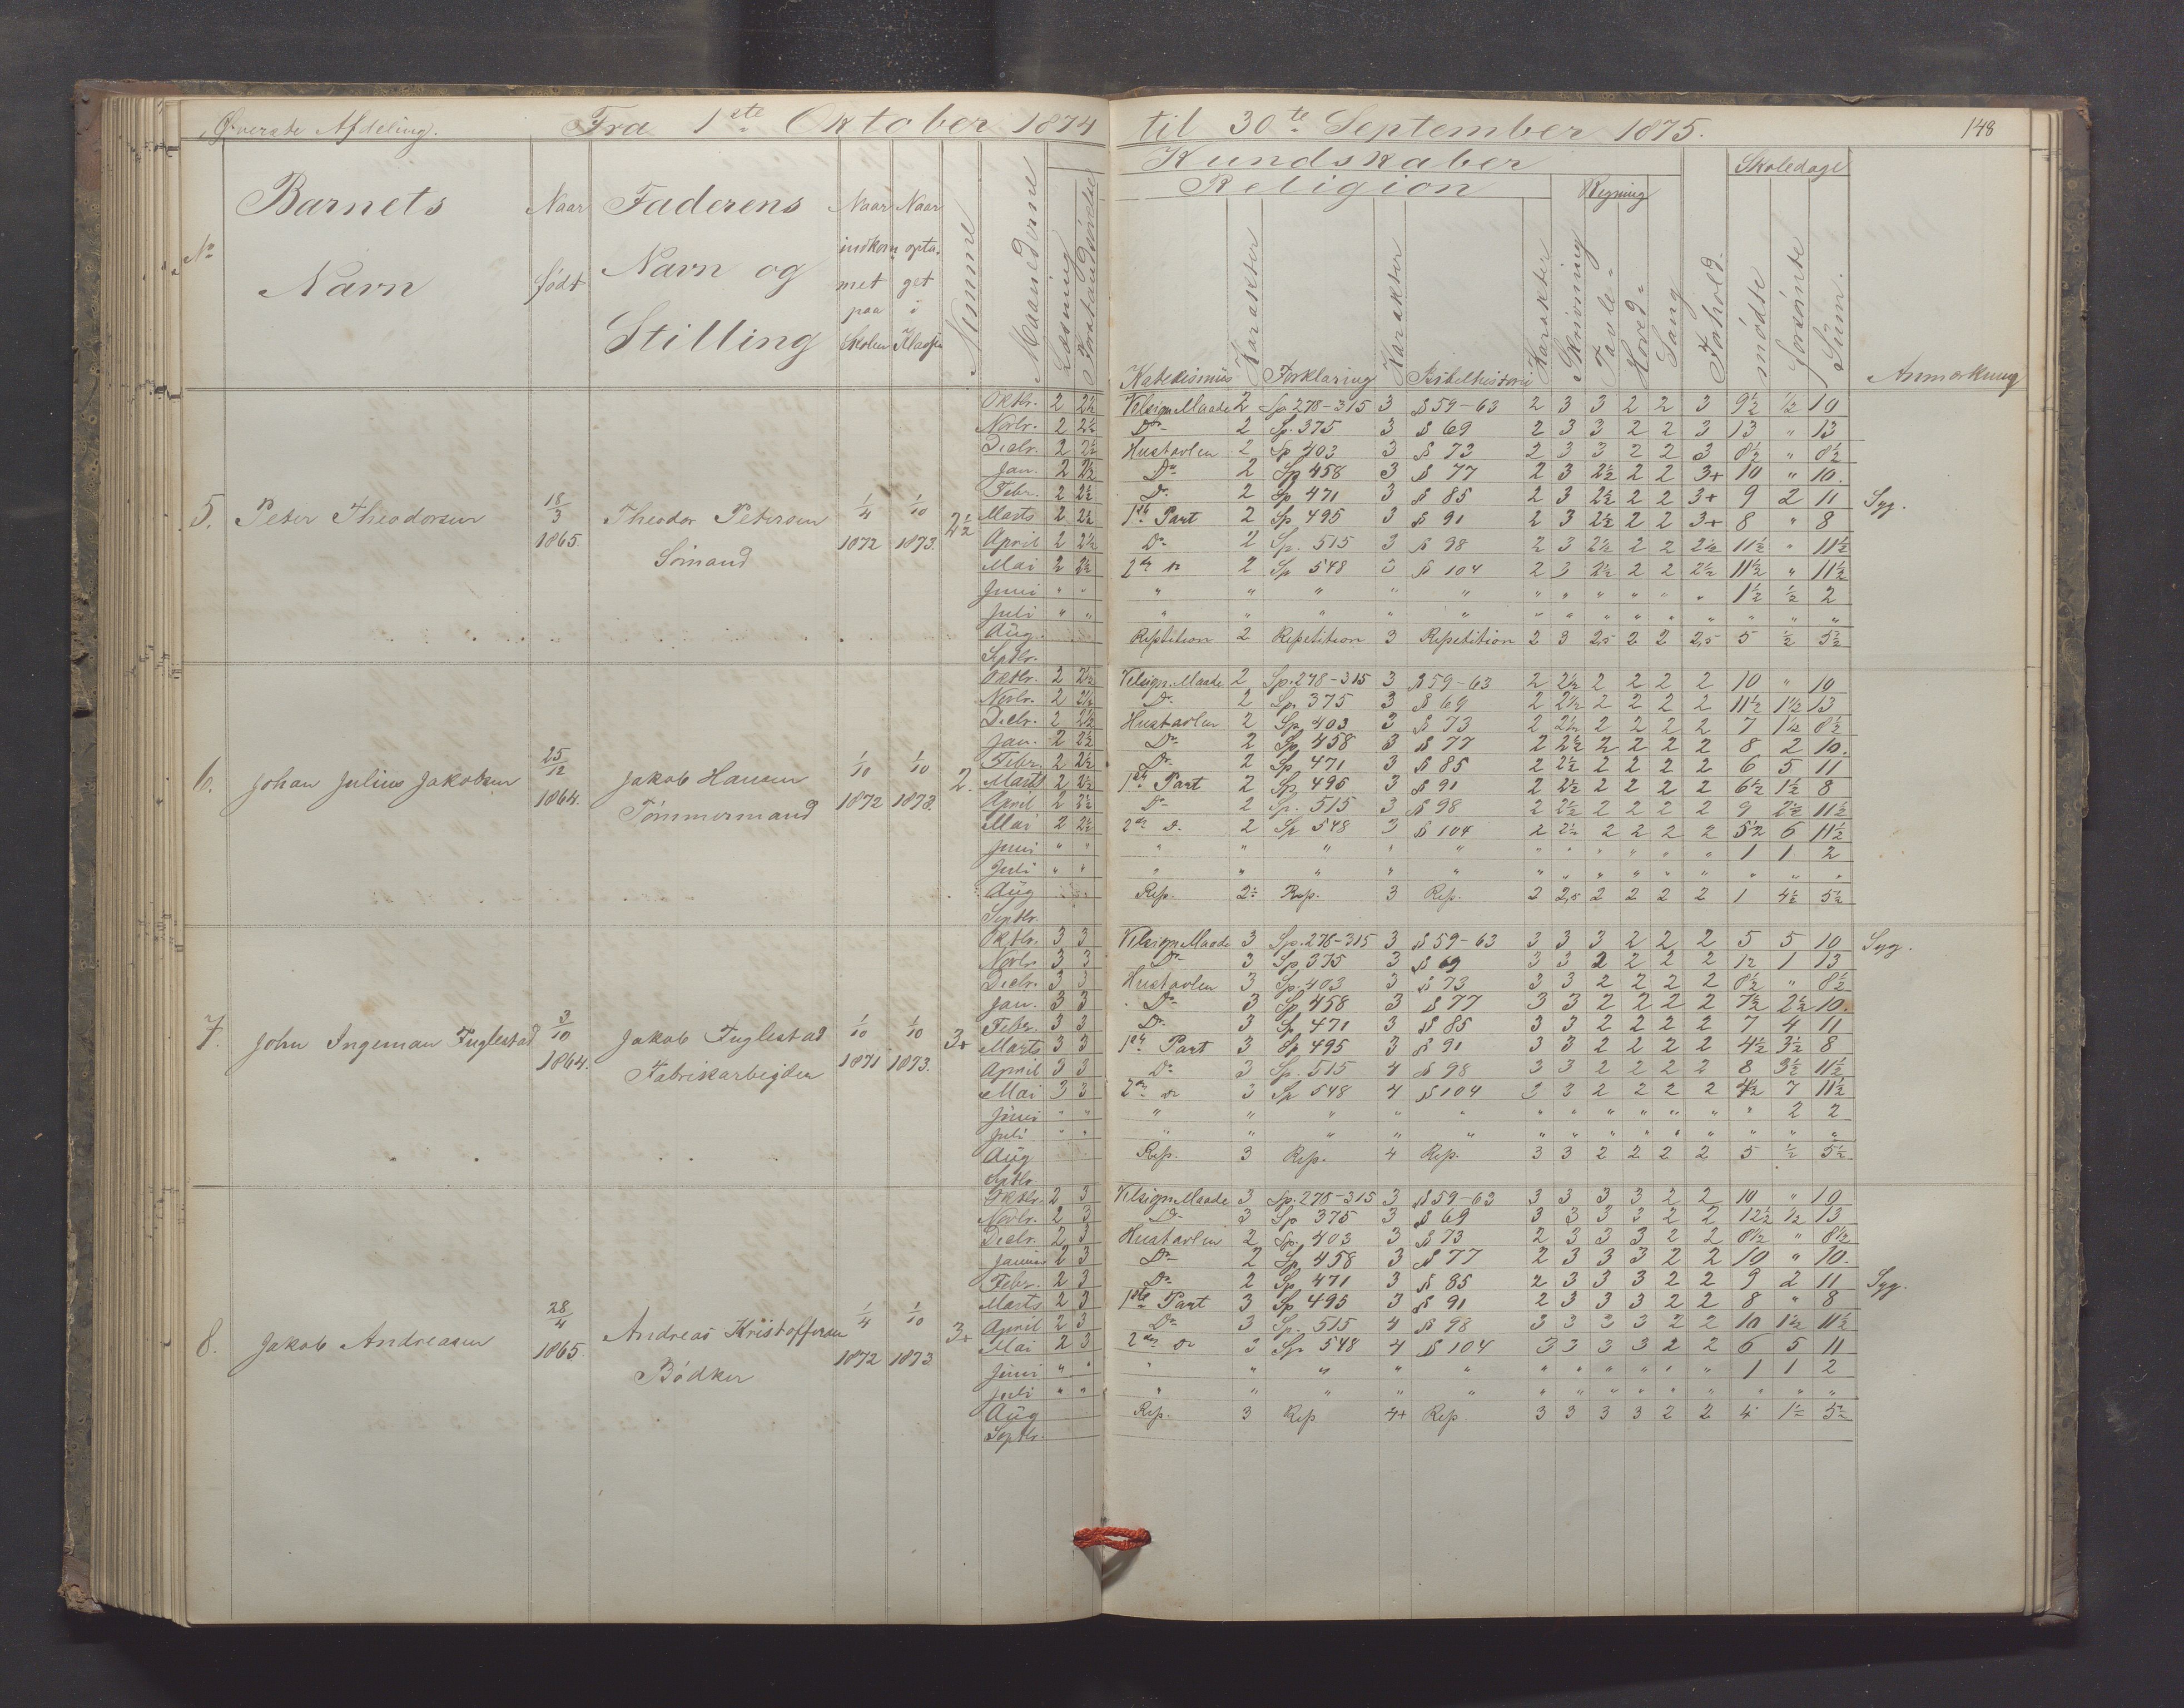 Øverste Afdeling. Fra 1ste Oktober 1874 til 30te September 1875. 148
Kundskaber
Religion Regning Skoledage
No Barnets Navn Naar født Faderens Navn og Stilling Naar indkommet paa Skolen Naar optaget i Klassen Nemme Maanederne Læsning Forstandsøvelse
Katekismus Karakter Forklaring Karakter Bibelhistorie Karakter Skrivning Tavle- Hoved- Sang Forhold. mødte forsømte Sum. Anmærkning
5. Peter Theodorsen 18/3 1865. Theodor Petersen Sømand 1/4 1872 1/10 1873. 2½
Oktbr. 2 2½ Velsign. Maade 2 Sp. 278-315 3 § 59-63 2 3 3 2 2 3 9½ ½ 10
Novbr. 2 2½ Do 2 Sp. 375 3 § 69 2 3 3 2 2 3 13 " 13
Decbr. 2 2½ Hustavlen 2 Sp 403 3 § 73 2 3 3 2 2 3 8½ " 8½
Jan. 2 2½ Do 2 Sp 458 3 § 77 2 3 2½ 2 2 3+ 10 " 10.
Febr. 2 2½ Do 2 Sp 471 3 § 85 2 3 2½ 2 2 3+ 9 2 11 Syg.
Marts 2 2½ 1ste Part 2 Sp 495 3 § 91 2 3 2½ 2 2 3+ 8 " 8
April 2 2½ Do 2 Sp. 515 3 § 98 2 3 2½ 2 2 2½ 11½ " 11½
Mai 2 2½ 2den Do 2 Sp 548 3 § 104 2 3 2½ 2 2 2½ 11½ " 11½
Juni " " " " " " " " " " " " " 1½ ½ 2
Juli " " " " " " " " " " " " " " " "
Aug. Reptition 2 Repetition 3 Repetition 2 3 2,5 2 2 2,5 5 ½ 5½
Septbr.
6. Johan Julius Jakobsen 25/12 1864. Jakob Hansen Tømmermand 1/10 1872 1/10 1873. 2.
Oktbr. 2 2½ Velsign. Maade 2 Sp. 278-315 3 § 59-63 2 2½ 2 2 2 2 10 " 10
Novbr. 2 2½ Do 2 Sp. 375 3 § 69 2 2½ 2 2 2 2 11½ 1½ 13
Decbr. 2 2½ Hustavlen 2 Sp 403 3 § 73 2 2½ 2 2 2 2 7 1½ 8½
Jan. 2 2½ Do 2 Sp 458 3 § 77 2 2½ 2 2 2 2 8 2 10.
Febr. 2 2½ Do 2 Sp 471 3 § 85 2 2½ 2 2 2 2 6 5 11
Marts 2 2½ 1ste Part 2 Sp 495 3 § 91 2 2½ 2 2 2 2 6½ 1½ 8
April 2 2½ Do 2 Sp. 515 3 § 98 2 2½ 2 2 2 2 9 2½ 11½
Mai 2 2½ 2den D. 2 Sp 548 3 § 104 2 2½ 2 2 2 2 5½ 6 11½
Juni " " " " " " " " " " " " " 1 1 2
Juli " " " " " " " " " " " " " " " "
Aug Rep. 2½ Rep. 3 Rep. 2 2,5 2 2 2 2 1 4½ 5½
Septbr.
7. John Ingeman Fuglestad 3/10 1864. Jakob Fuglestad Fabrikarbeider 1/10 1871 1/10 1873. 3+
Oktbr. 3 3 Velsign Maade 3 Sp. 278-315 3 § 59-63 3 3 3 2 2 2 5 5 10 Syg.
Novbr. 3 3 Do 3 Sp 375 3 § 69 3 3 2 2 2 2 12 1 13
Decbr. 3 3 Hustavlen 3 Sp. 403 3 § 73 3 3 2 2 2 2 8½ " 8½
Jan. 3 3 Do 3 Sp 458 3 § 77 3 3 2 2 2 2 7½ 2½ 10.
Febr. 3 3 Do 3 Sp 471 3 § 85 3 3 2 2 2 2 7 4 11
Marts 3 3 1ste Part 3 Sp 495 3 § 91 3 3 2 2 2 2 4½ 3½ 8
April 3 3 Do 3 Sp. 515 4 § 98 3 3 2 2 2 2 8 3½ 11½
Mai 3 3 2den Do 3 Sp 548 4 § 104 3 3 2 2 2 2 4½ 7 11½
Juni " " " " " " " " " " " " " " 2 2
Juli " " " " " " " " " " " " " " " "
Aug Rep. 3 Rep. 4 Rep. 3 3 2 2 2 2 5 ½ 5½
Septbr.
8. Jakob Andreasen 28/4 1865. Andreas Kristoffersen Bødker 1/4 1872 1/10 1873 3+
Oktbr. 2 3 Velsign. Maade 3 Sp. 278-315 3 § 59-63 3 3 3 3 2 2 10 " 10
Novbr. 2 3 Do 3 Sp 375 3 § 69 3 3 3 3 2 2 12½ ½ 13
Decbr. 2 3 Hustavlen 2 Sp. 403 3 § 73 2 3 3 3 2 2 8½ " 8½
Januar 2 3 Do 2 Sp 458 3 § 77 2 3 3 3 2 2 10 " 10.
Febr. 2 3 Do 2 Sp 471 3 § 85 2 3 3 3 2 2 9 2 11 Syg.
Marts 2 3 1ste Part 3 Sp 495 3 § 91 2 3 3 3 2 2 8 " 8
April 2 3 Do 3 Sp. 515 4 § 98 3 3 3 3 2 2 10 1½ 11½
Mai 2 3 2den Do 3 Sp. 548 4 § 104 3 3 3 3 2 2 6 5 11
Juni " " " " " " " " " " " " " 1 1 2
Juli " " " " " " " " " " " " " " " "
Aug Rep. 3 Rep 4+ Rep. 3 3 3 3 2 2 4 1½ 5½
Septbr.